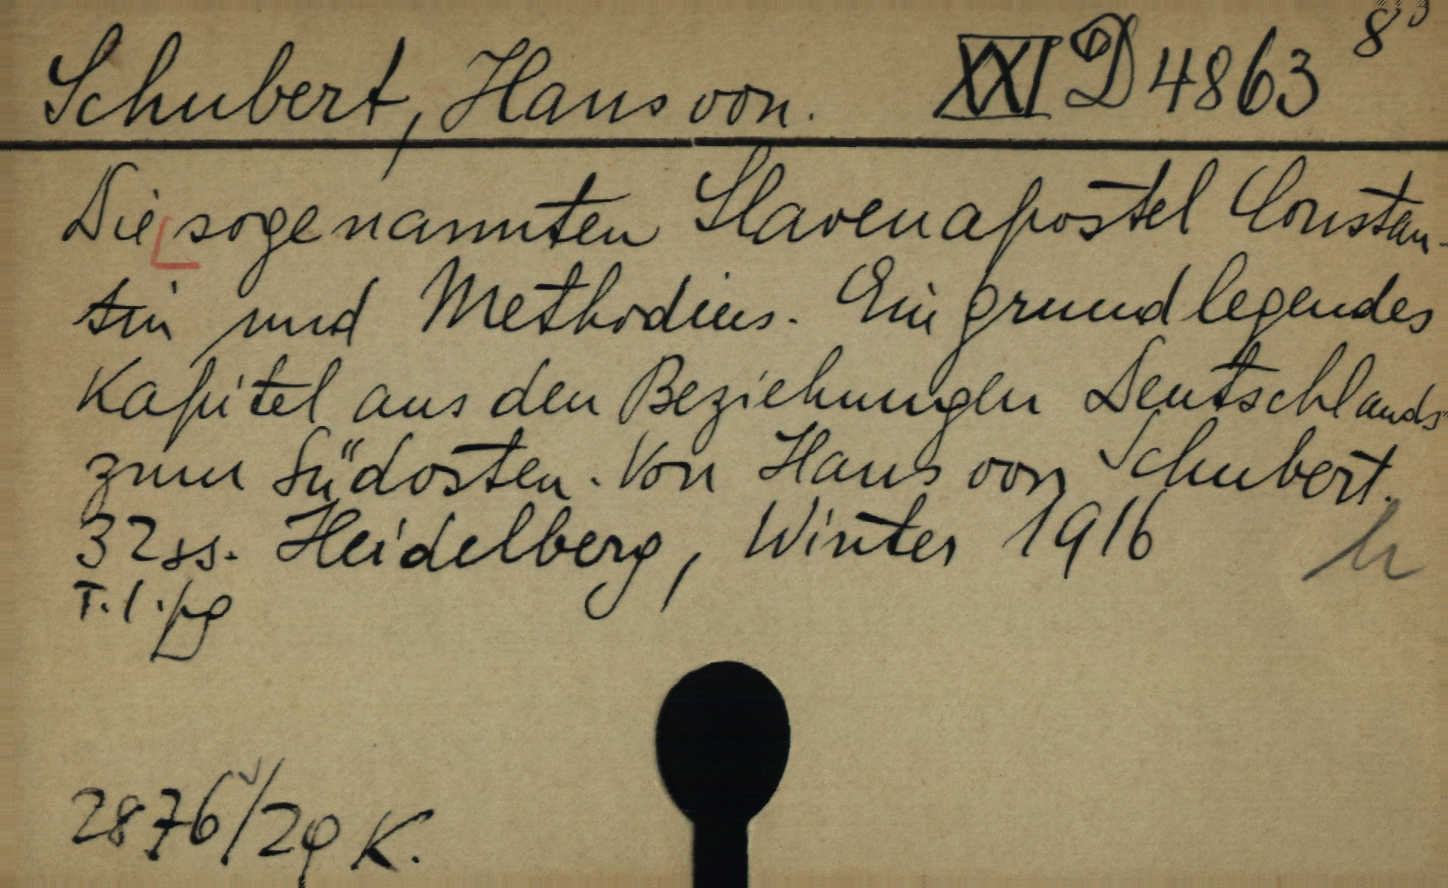 Schubert, Hans von. XXI D 4863 8°
Die sogenannten Slavenapostel Constan-
tin und Methodius. Ein grundlegendes
Kapitel aus den Beziehungen Deutschlands
zum Südosten. Von Hans von Schubert.
32 ss. Heidelberg, Winter 1916
T. 1. pg
2876/29 K.